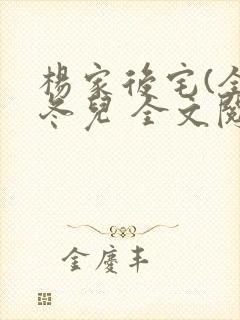 楊家後宅(全
冬兒 全文閱
金慶丰